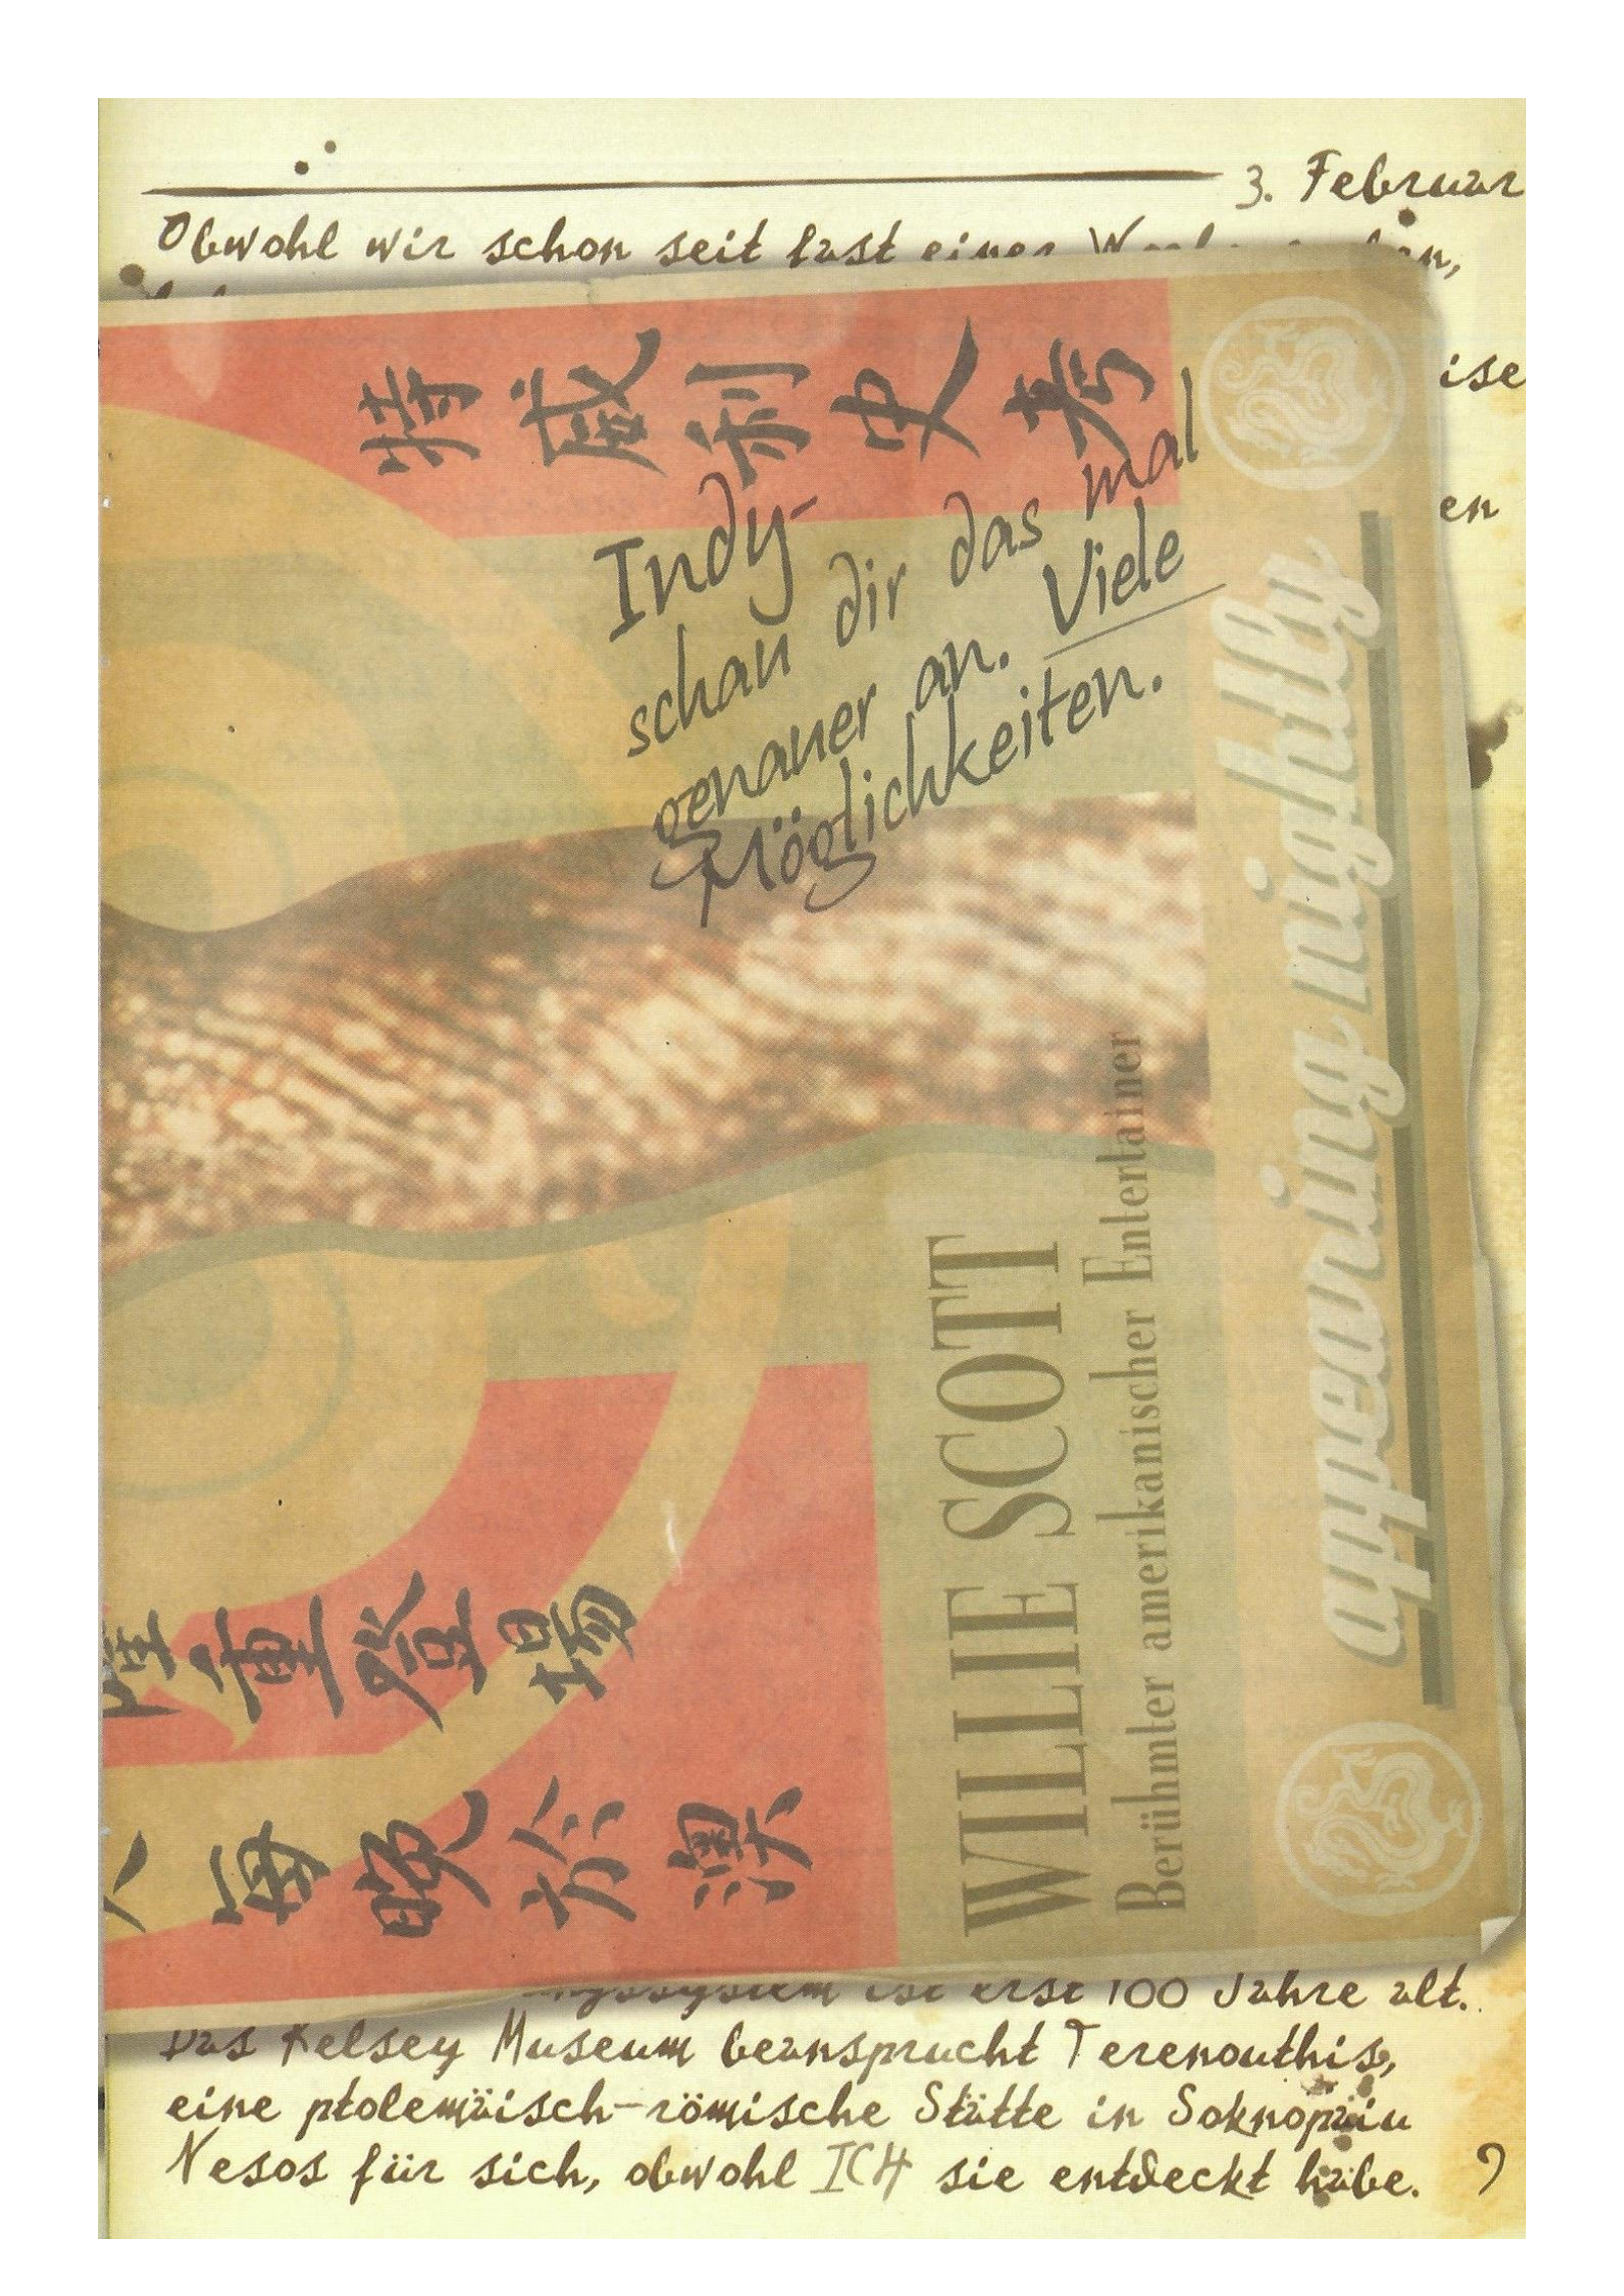 3. Februar
Obwohl wir schon seit fast einer
ise
en
特威利史考
隆重登場
每晚於澳
Indy-
schau dir das mal
genauer an. Viele
Möglichkeiten.
WILLIE SCOTT
Berühmter amerikanischer Entertainer
appearing nightly
ist erst 100 Jahre alt.
Das Kelsey Museum beansprucht Terenouthis,
eine ptolemäisch-römische Stätte in Soknopaiu
Nesos für sich, obwohl ICH sie entdeckt habe. 9